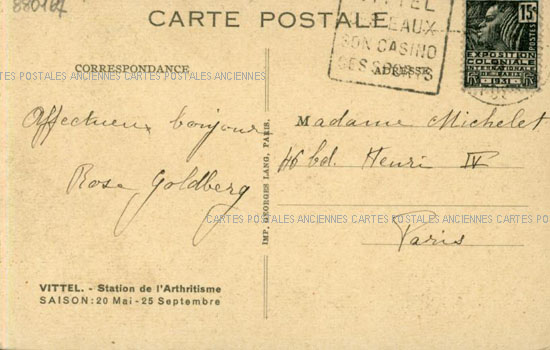 880167
CARTE POSTALE
VITTEL
EAUX
SON CASINO
SES SPORTS
15c
POSTES
EXPOSITION
COLONIALE
INTERNATIONALE
PARIS
1931
CORRESPONDANCE
ADRESSE
CARTES POSTALES ANCIENNES CARTES POSTALES ANCIENNES CARTES POSTALES ANCIENNES CARTES POSTALES
Affectueux bonjour
Rose Goldberg
IMP. GEORGES LANG, PARIS.
Madame Michelet
46 bd. Henri IV
Paris
CARTES POSTALES ANCIENNES CARTES POSTALES ANCIENNES CARTES POS
VITTEL. - Station de l'Arthritisme
SAISON: 20 Mai - 25 Septembre